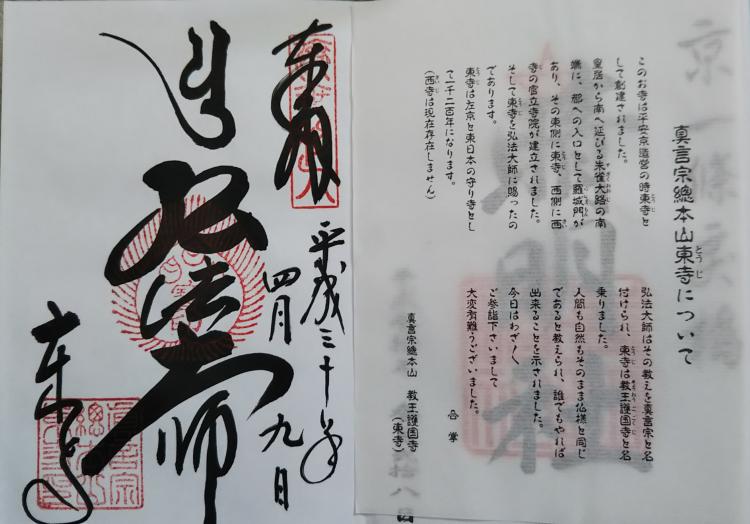 真言宗總本山東寺について
このお寺は平安京造営の時東寺と
して創建されました。
皇居から南へ延びる朱雀大路の南
端に、都への入口として羅城門が
あり、その東側に東寺、西側に西
寺の官立寺院が建立されました。
そして東寺を弘法大師に賜ったの
であります。
東寺は左京と東日本の守り寺とし
て一千二百年になります。
(西寺は現在存在しません)
弘法大師はその教えを真言宗と名
付けられ、東寺は教王護国寺と名
乗りました。
人間も自然もそのまま仏様と同じ
であると教えられ、誰でもやれば
出来ることを示されました。
今日はわざ〱
ご参詣下さいまして
大変有難うございました。
合掌
真言宗總本山 教王護国寺
(東寺)
奉拝
平成三十年
四月九日
弘法大師
東寺